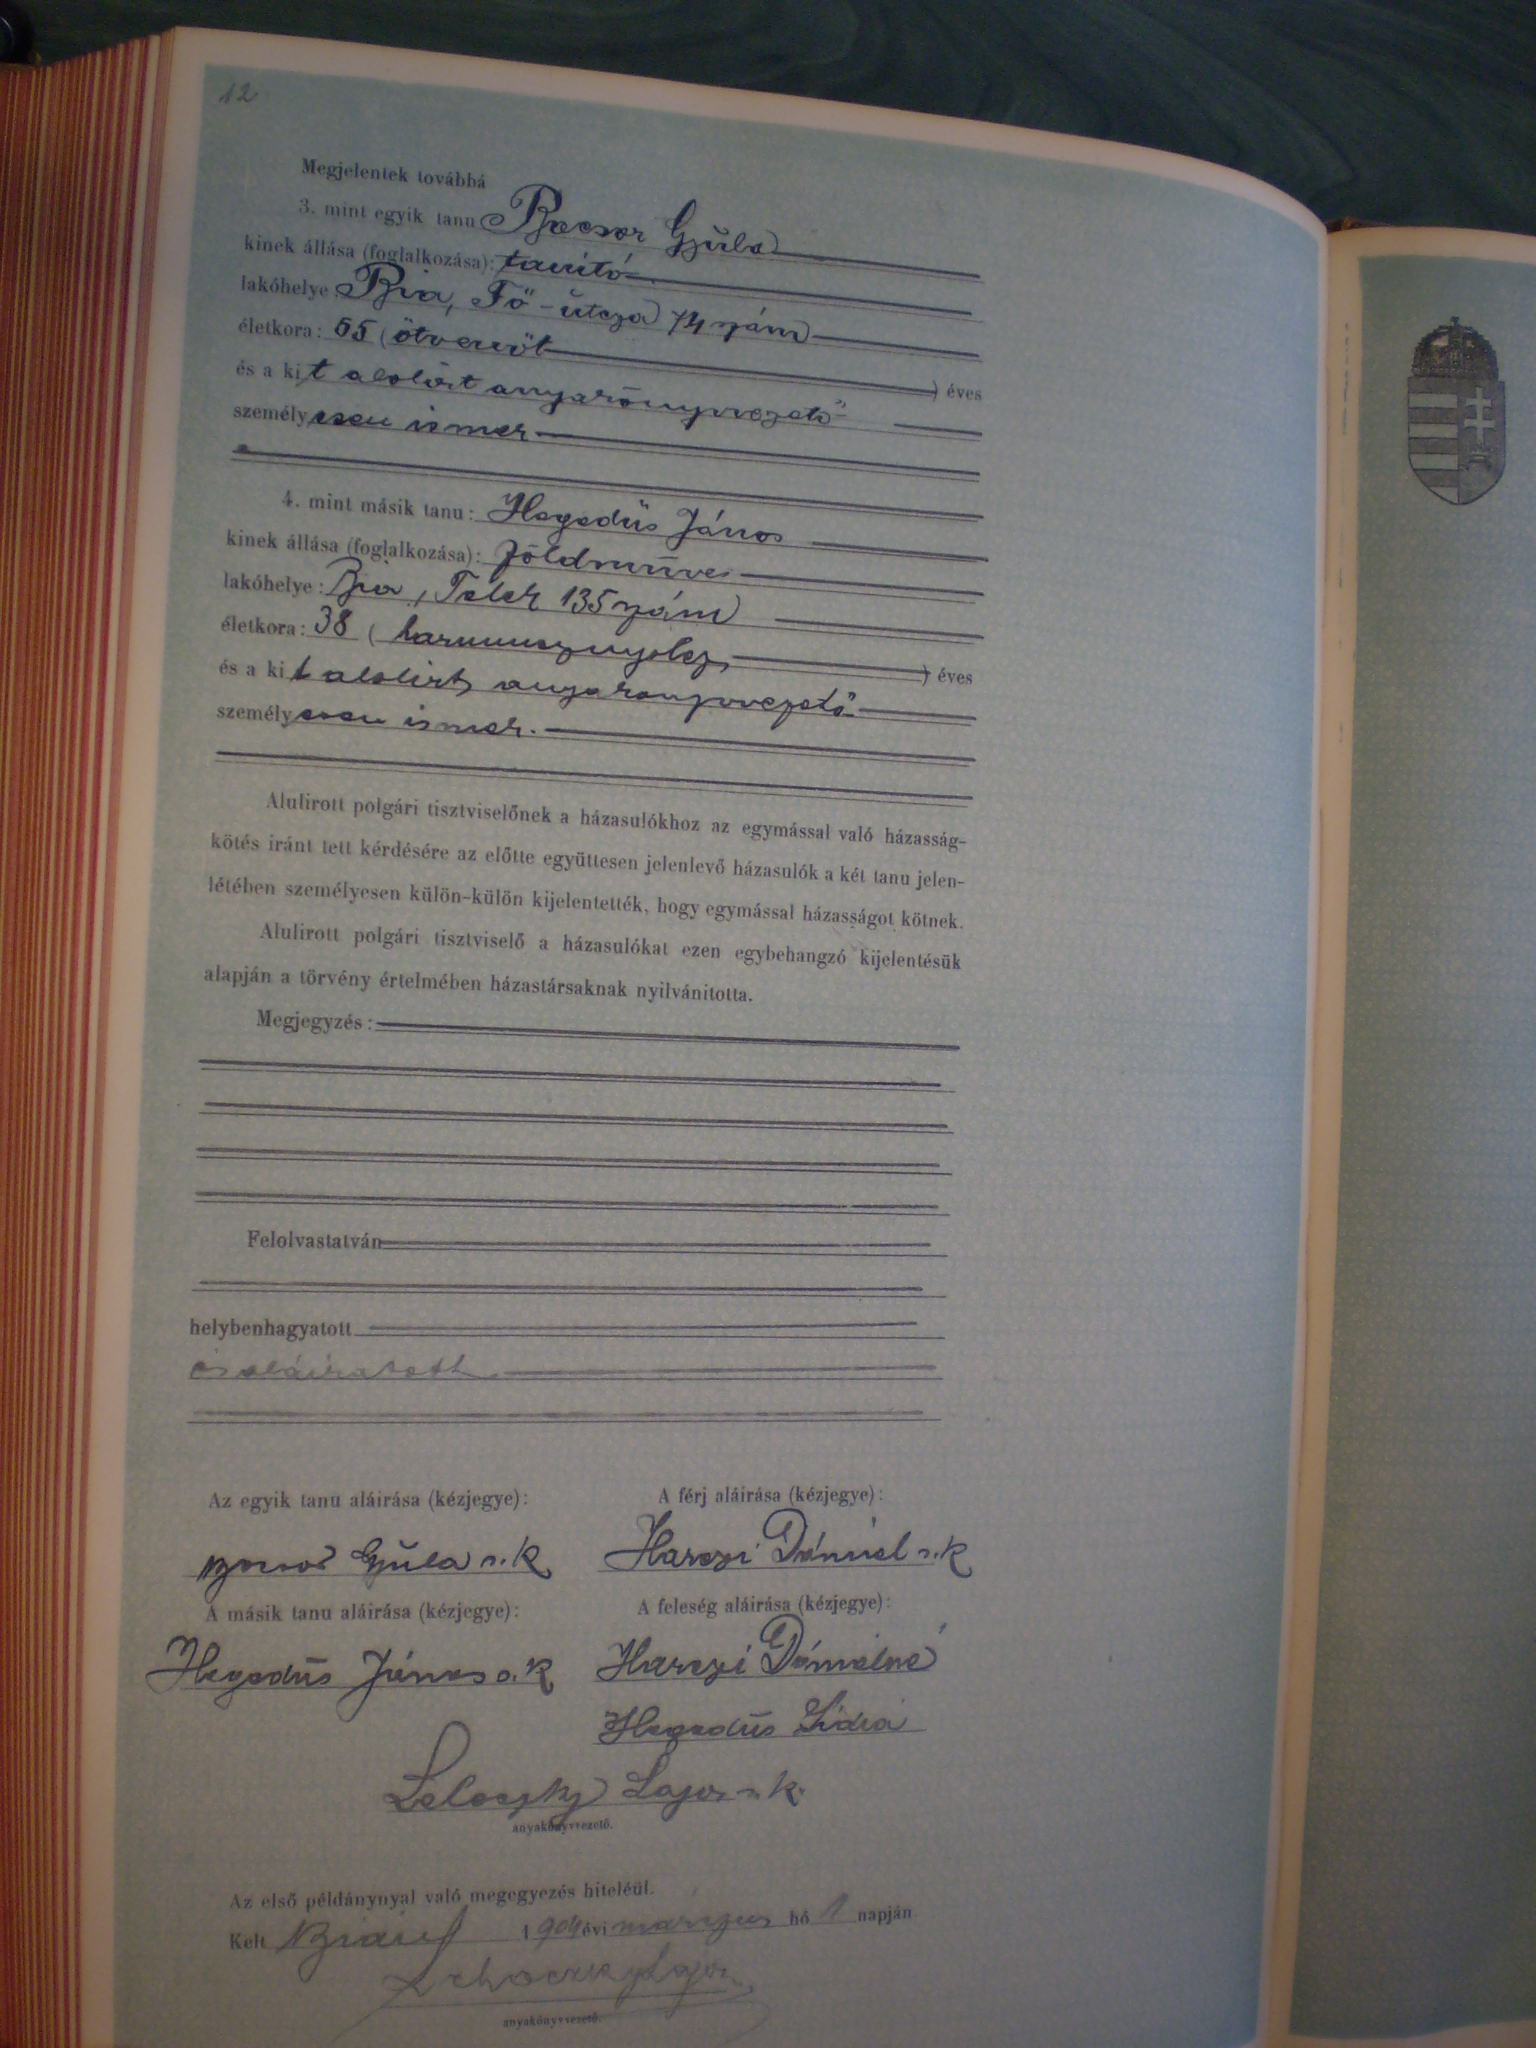 12
Megjelentek továbbá
3. mint egyik tanu Bocsor Gyula
kinek állása (foglalkozása): tanító
lakóhelye Bia, Fő-utcza 74 szám
életkora: 55 (ötvenöt ) éves
és a kit alolírt anyakönyvvezető
személyesen ismer
4. mint másik tanu: Hegedüs János
kinek állása (foglalkozása): földmüves
lakóhelye: Bia, Telek 135 szám
életkora: 38 ( harmincznyolcz ) éves
és a kit alolirt anyakönyvvezető
személyesen ismer.
Alulirott polgári tisztviselőnek a házasulókhoz az egymással való házasság-
kötés iránt tett kérdésére az előtte együttesen jelenlevő házasulók a két tanu jelen-
létében személyesen külön-külön kijelentették, hogy egymással házasságot kötnek.
Alulirott polgári tisztviselő a házasulókat ezen egybehangzó kijelentésük
alapján a törvény értelmében házastársaknak nyilvánitotta.
Megjegyzés:
Felolvastatván
helybenhagyatott
és aláiratott
Az egyik tanu aláirása (kézjegye): A férj aláirása (kézjegye):
Bocsor Gyula s.k Harczi Dániel s.k
A másik tanu aláirása (kézjegye): A feleség aláirása (kézjegye):
Hegedüs János s.k Harczi Dánielné
Hegedüs Lidia
Lajos s.k.
anyakönyvvezető.
Az első példánynyal való megegyezés hiteléül.
Kelt Bián 1904 évi marczius hó 1 napján
Lajos
anyakönyvvezető.